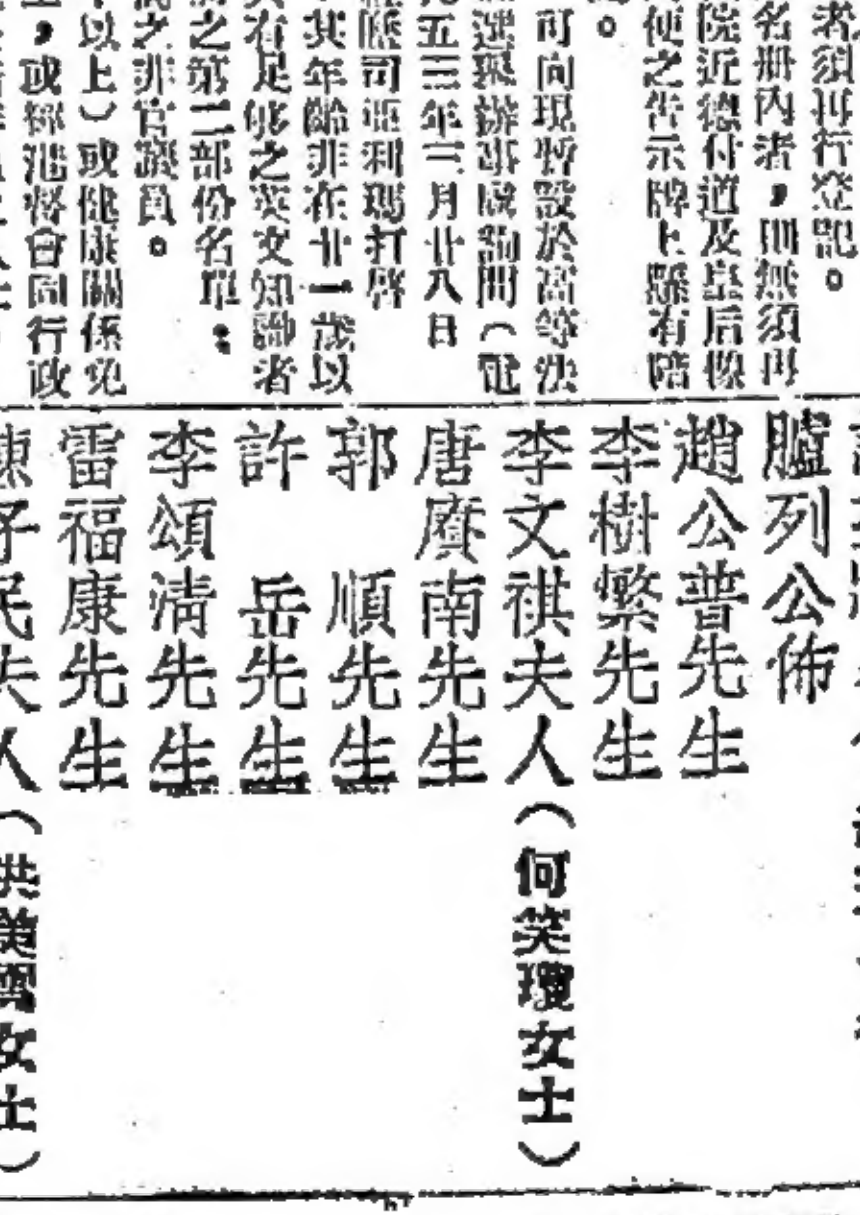 者須再行登記。
名册內者，則無須再
院近德付道及皇后像
便之告示牌上縣有陪
可向現暫設於高等法
選舉辦事處詢問（電
五三年三月廿八日
司亞利瑪打啓
其年齡非在廿一歲以
有足够之英文知識者
之第二部份名單：
之非官議員。
以上）或健康關係免
，或經港督會同行政
臚列公佈
趙公普先生
李樹繁先生
李文祺夫人（何笑瓊女士）
唐賡南先生
郭順先生
許岳先生
李頌清先生
雷福康先生
陳子民夫人（洪美
女士）